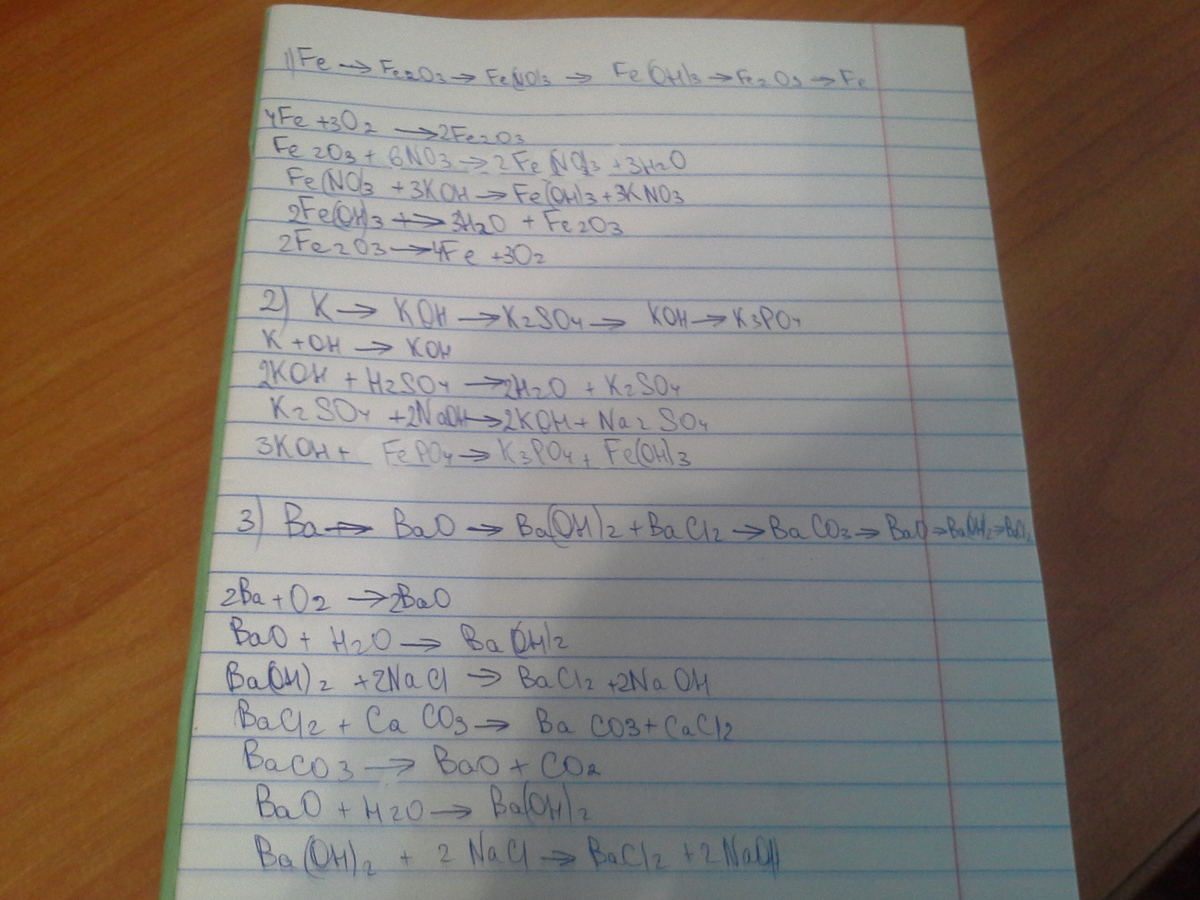 1) Fe → Fe2O3 → Fe(NO)3 → Fe(OH)3 → Fe2O3 → Fe
4Fe + 3O2 → 2Fe2O3
Fe2O3 + 6NO3 → 2Fe(NO)3 + 3H2O
Fe(NO)3 + 3KOH → Fe(OH)3 + 3KNO3
2Fe(OH)3 +→ 3H2O + Fe2O3
2Fe2O3 → 4Fe + 3O2
2) K → KOH → K2SO4 → KOH → K3PO4
K + OH → KOH
2KOH + H2SO4 → 2H2O + K2SO4
K2SO4 + 2NaOH → 2KOH + Na2SO4
3KOH + FePO4 → K3PO4 + Fe(OH)3
3) Ba → BaO → Ba(OH)2 + BaCl2 → BaCO3 → BaO → Ba(OH)2 → BaCl2
2Ba + O2 → 2BaO
BaO + H2O → Ba(OH)2
Ba(OH)2 + 2NaCl → BaCl2 + 2NaOH
BaCl2 + CaCO3 → BaCO3 + CaCl2
BaCO3 → BaO + CO2
BaO + H2O → Ba(OH)2
Ba(OH)2 + 2NaCl → BaCl2 + 2NaOH